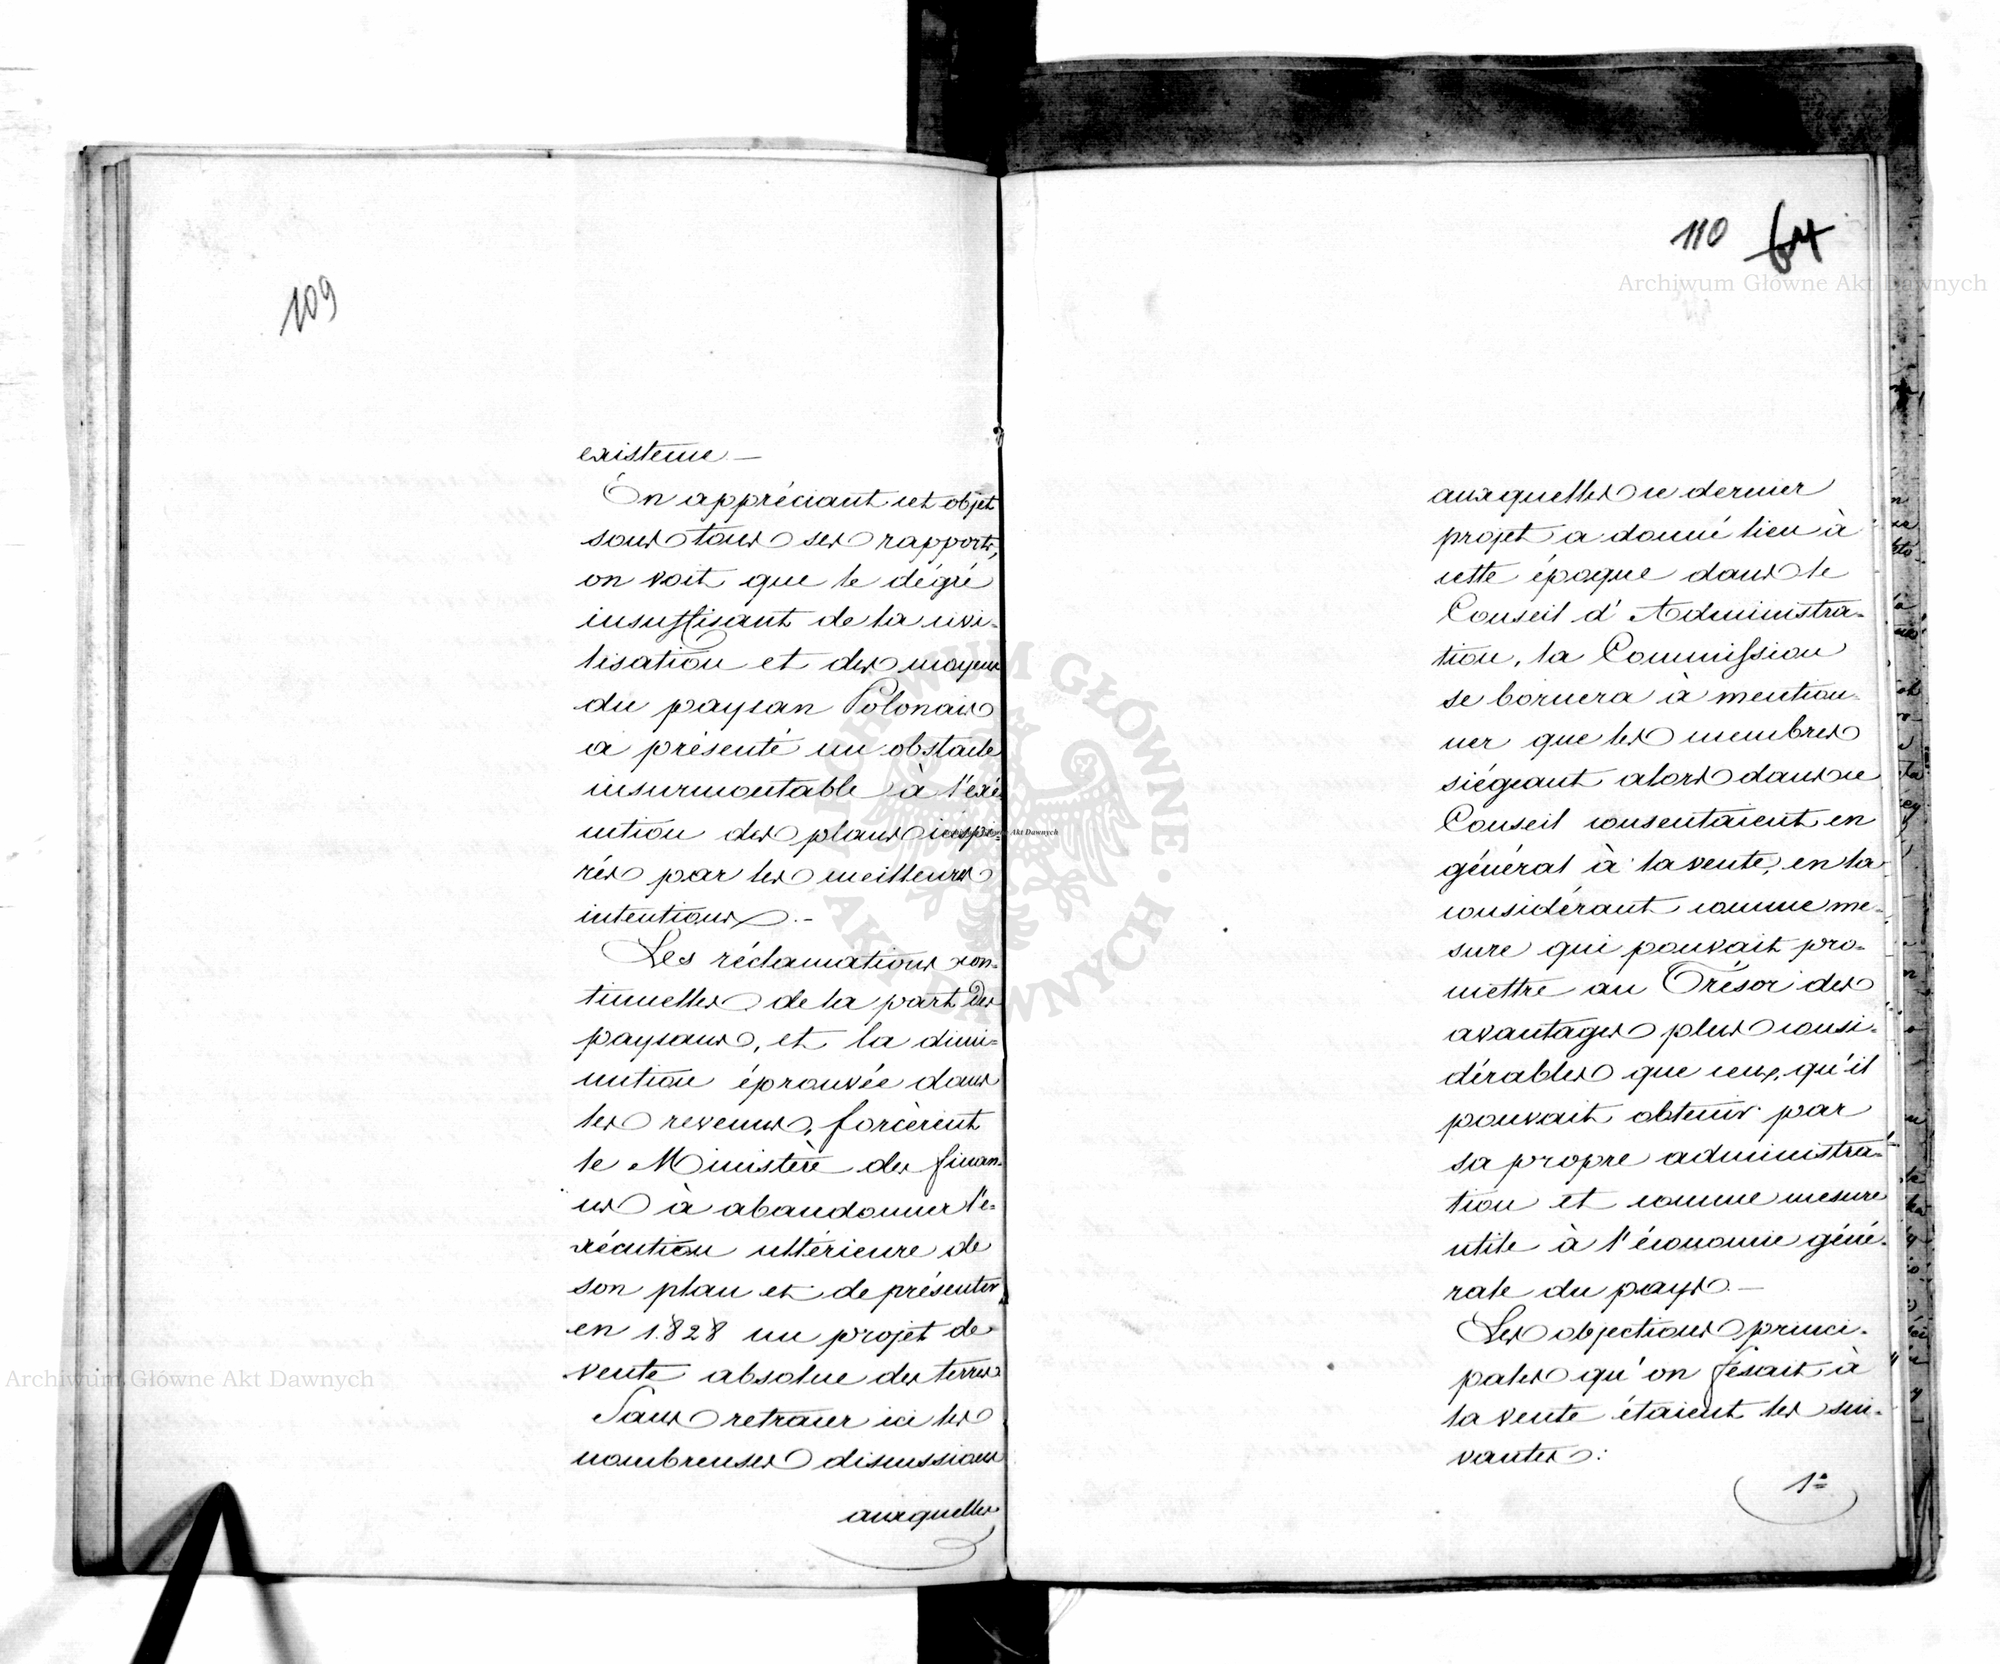 109
existence. —
En appréciant cet objet
sous tous ses rapports,
on voit que le dégré
insuffisant de la civi-
lisation et des moyens
du paysan Polonais
a présenté un obstacle
insurmontable à l'exé-
cution des plans inspi-
rés par les meilleures
intentions. -
Les réclamations con-
tinuelles de la part des
paysans, et la dimi-
nution éprouvée dans
les revenus, forcèrent
le Ministère des finan-
ces à abandonner l'e-
xécution ultérieure de
son plan et de présenter
en 1828 un projet de
vente absolue des terres
Sans retracer ici les
nombreuses discussions
auxquelles
110 64
auxquelles ce dernier
projet a donné lieu à
cette époque dans le
Conseil d'Administra-
tion, la Commission
se bornera à mention-
ner que les membres
siégeant alors dans ce
Conseil consentaient en
général à la vente, en la
considérant comme me-
sure qui pouvait pro-
mettre au Trésor des
avantages plus consi-
dérables que ceux, qu'il
pouvait obtenir par
sa propre administra-
tion et comme mesure
utile à l'économie géné-
rale du pays. —
Les objections princi-
pales qu'on fesait à
la vente étaient les sui-
vantes:
1°
Archiwum Główne Akt Dawnych
Archiwum Główne Akt Dawnych
Archiwum Główne Akt Dawnych
ARCHIWUM GŁÓWNE AKT DAWNYCH